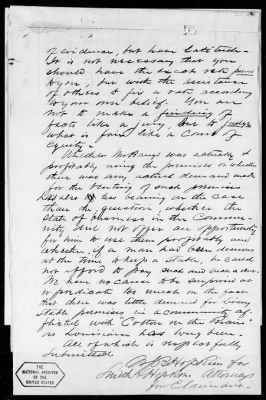 of evidence, but have latitude.
It is not necessary that you
should have the exact rate proven
to you, but with the assistance
of others to fix a rate according
to your own belief. You are
not to make a finding of
facts like a jury, but to judge
what is fair, like a Court of
Equity.
Whether McVaugh was actually &
profitably using the premises or whether
there was any actual demand made
for the renting of such premises
has less bearing on the case
than the question, whether the
State of business in the Commu-
nity did not offer an opportunity
for him to use them profitably and
whether, if a man had been desirous
at the time to keep a stable, he could
not afford to pay such and such a rent.
We have no cause to be surprised at
or predicate too much on the fact
that there was little demand for living
stable premises in a community af-
flicted with Cotton on the Brain
as Louisiana was.
All of which is respectfully
submitted
Hopkins for
Smith & Hopkins Attorneys
for Claimant.
THE
NATIONAL ARCHIVES
OF THE
UNITED STATES